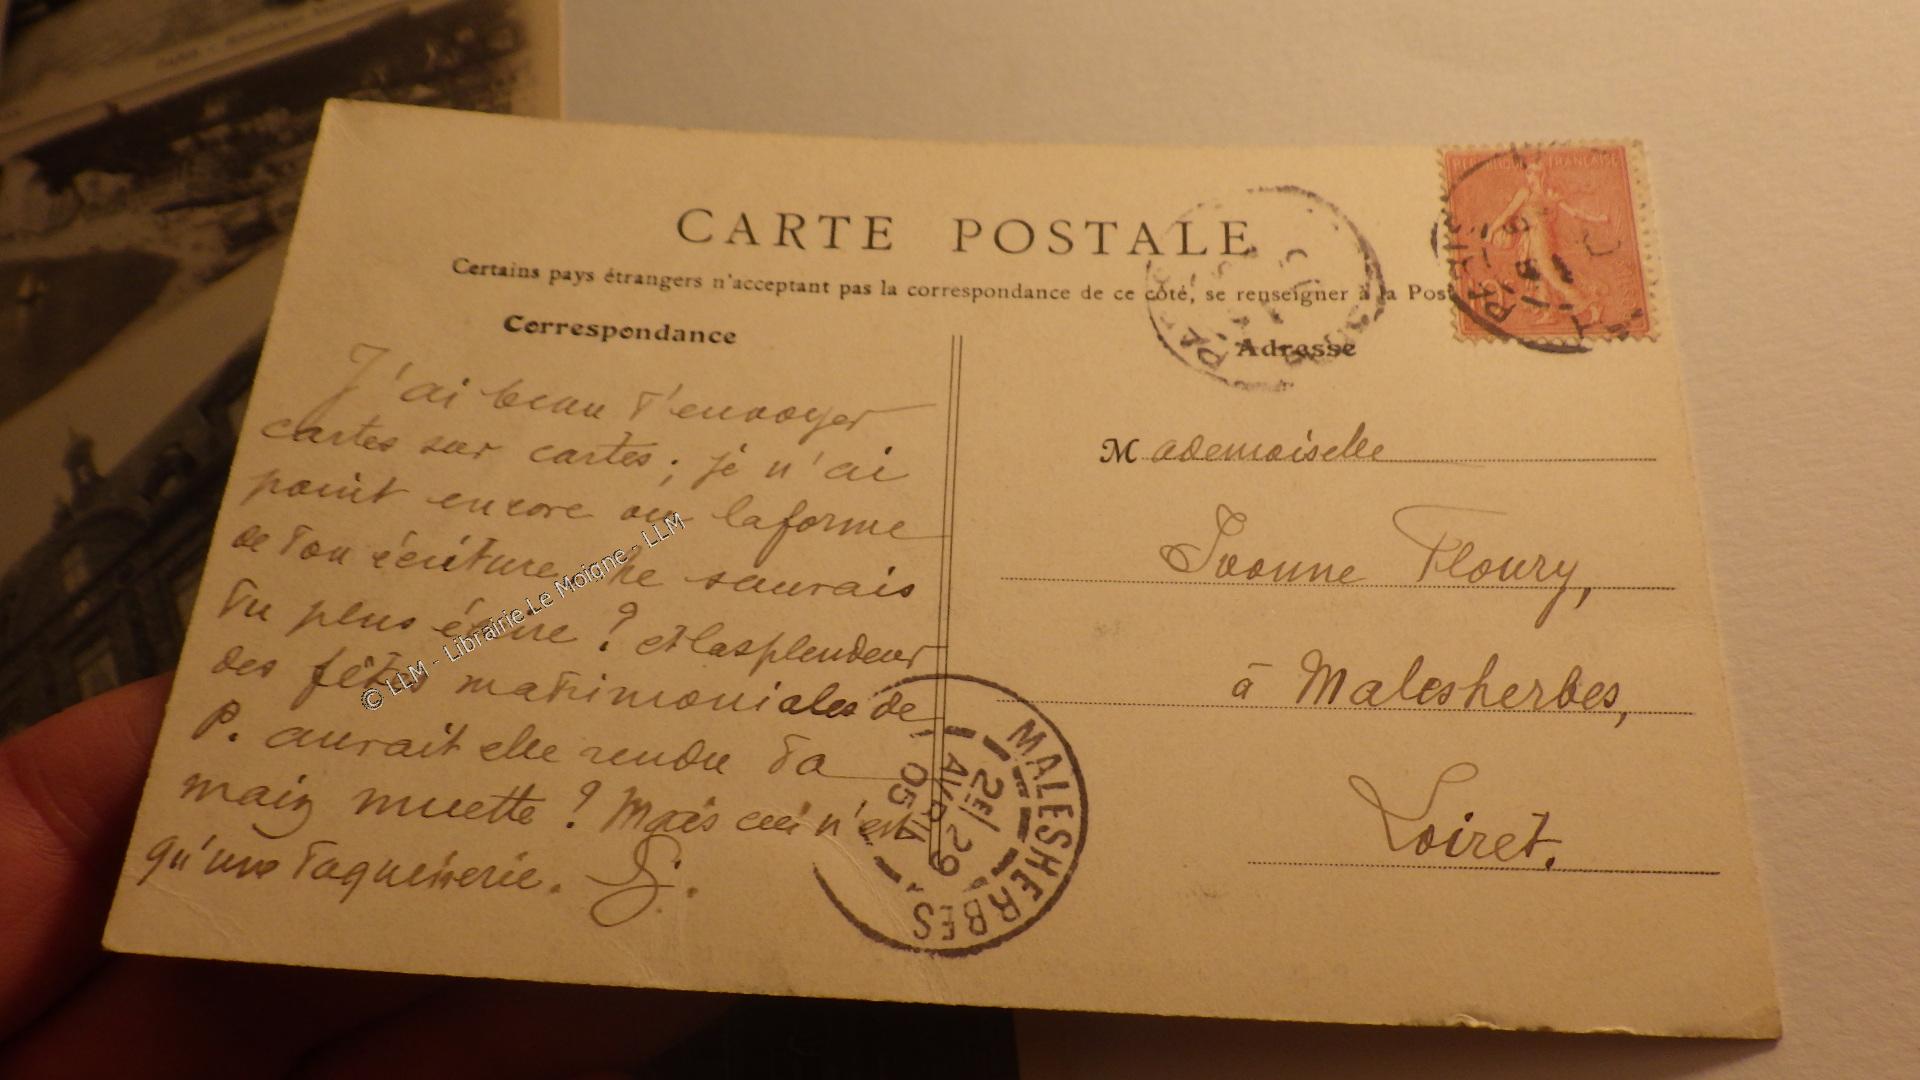 CARTE POSTALE
Certains pays étrangers n'acceptent pas la correspondance de ce côté, se renseigner à la Pos
Correspondance
J'ai beau t'envoyer
cartes sur cartes ; je n'ai
point encore vu la forme
de ton écriture. Ne saurais
tu plus écrire ? et la splendeur
des fêtes matrimoniales de
P. aurait elle rendu ta
main muette ? Mais ceci n'est
qu'une taquinerie.
Adresse
Mademoiselle
Ivonne Floury,
à Malesherbes,
Loiret.
REPUBLIQUE FRANÇAISE
PARIS
MALESHERBES
2E/29
AVRIL
05
© LLM - Librairie Le Moigne - LLM